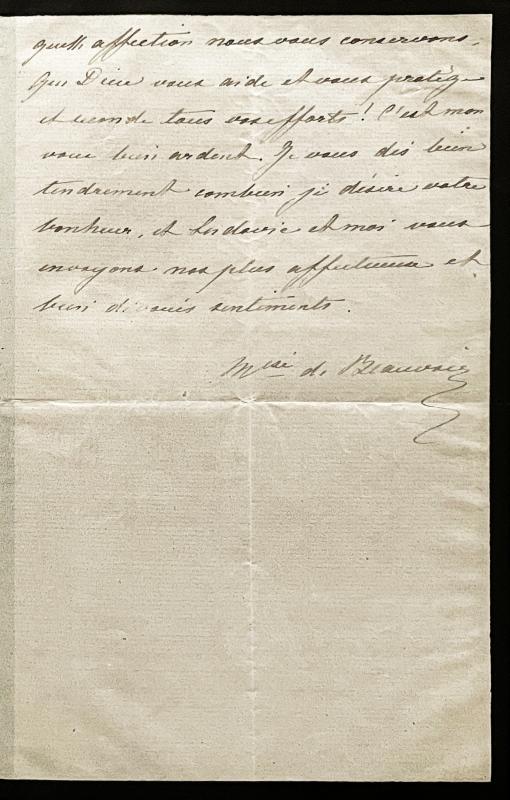 quelle affection nous vous conservons.
Que Dieu vous aide et vous protège
et seconde tous vos efforts ! C'est mon
vœu bien ardent. Je vous dis bien
tendrement combien je désire votre
bonheur, et Ludovic et moi vous
envoyons nos plus affectueux et
bien dévoués sentiments.
Mise de Beauvoir